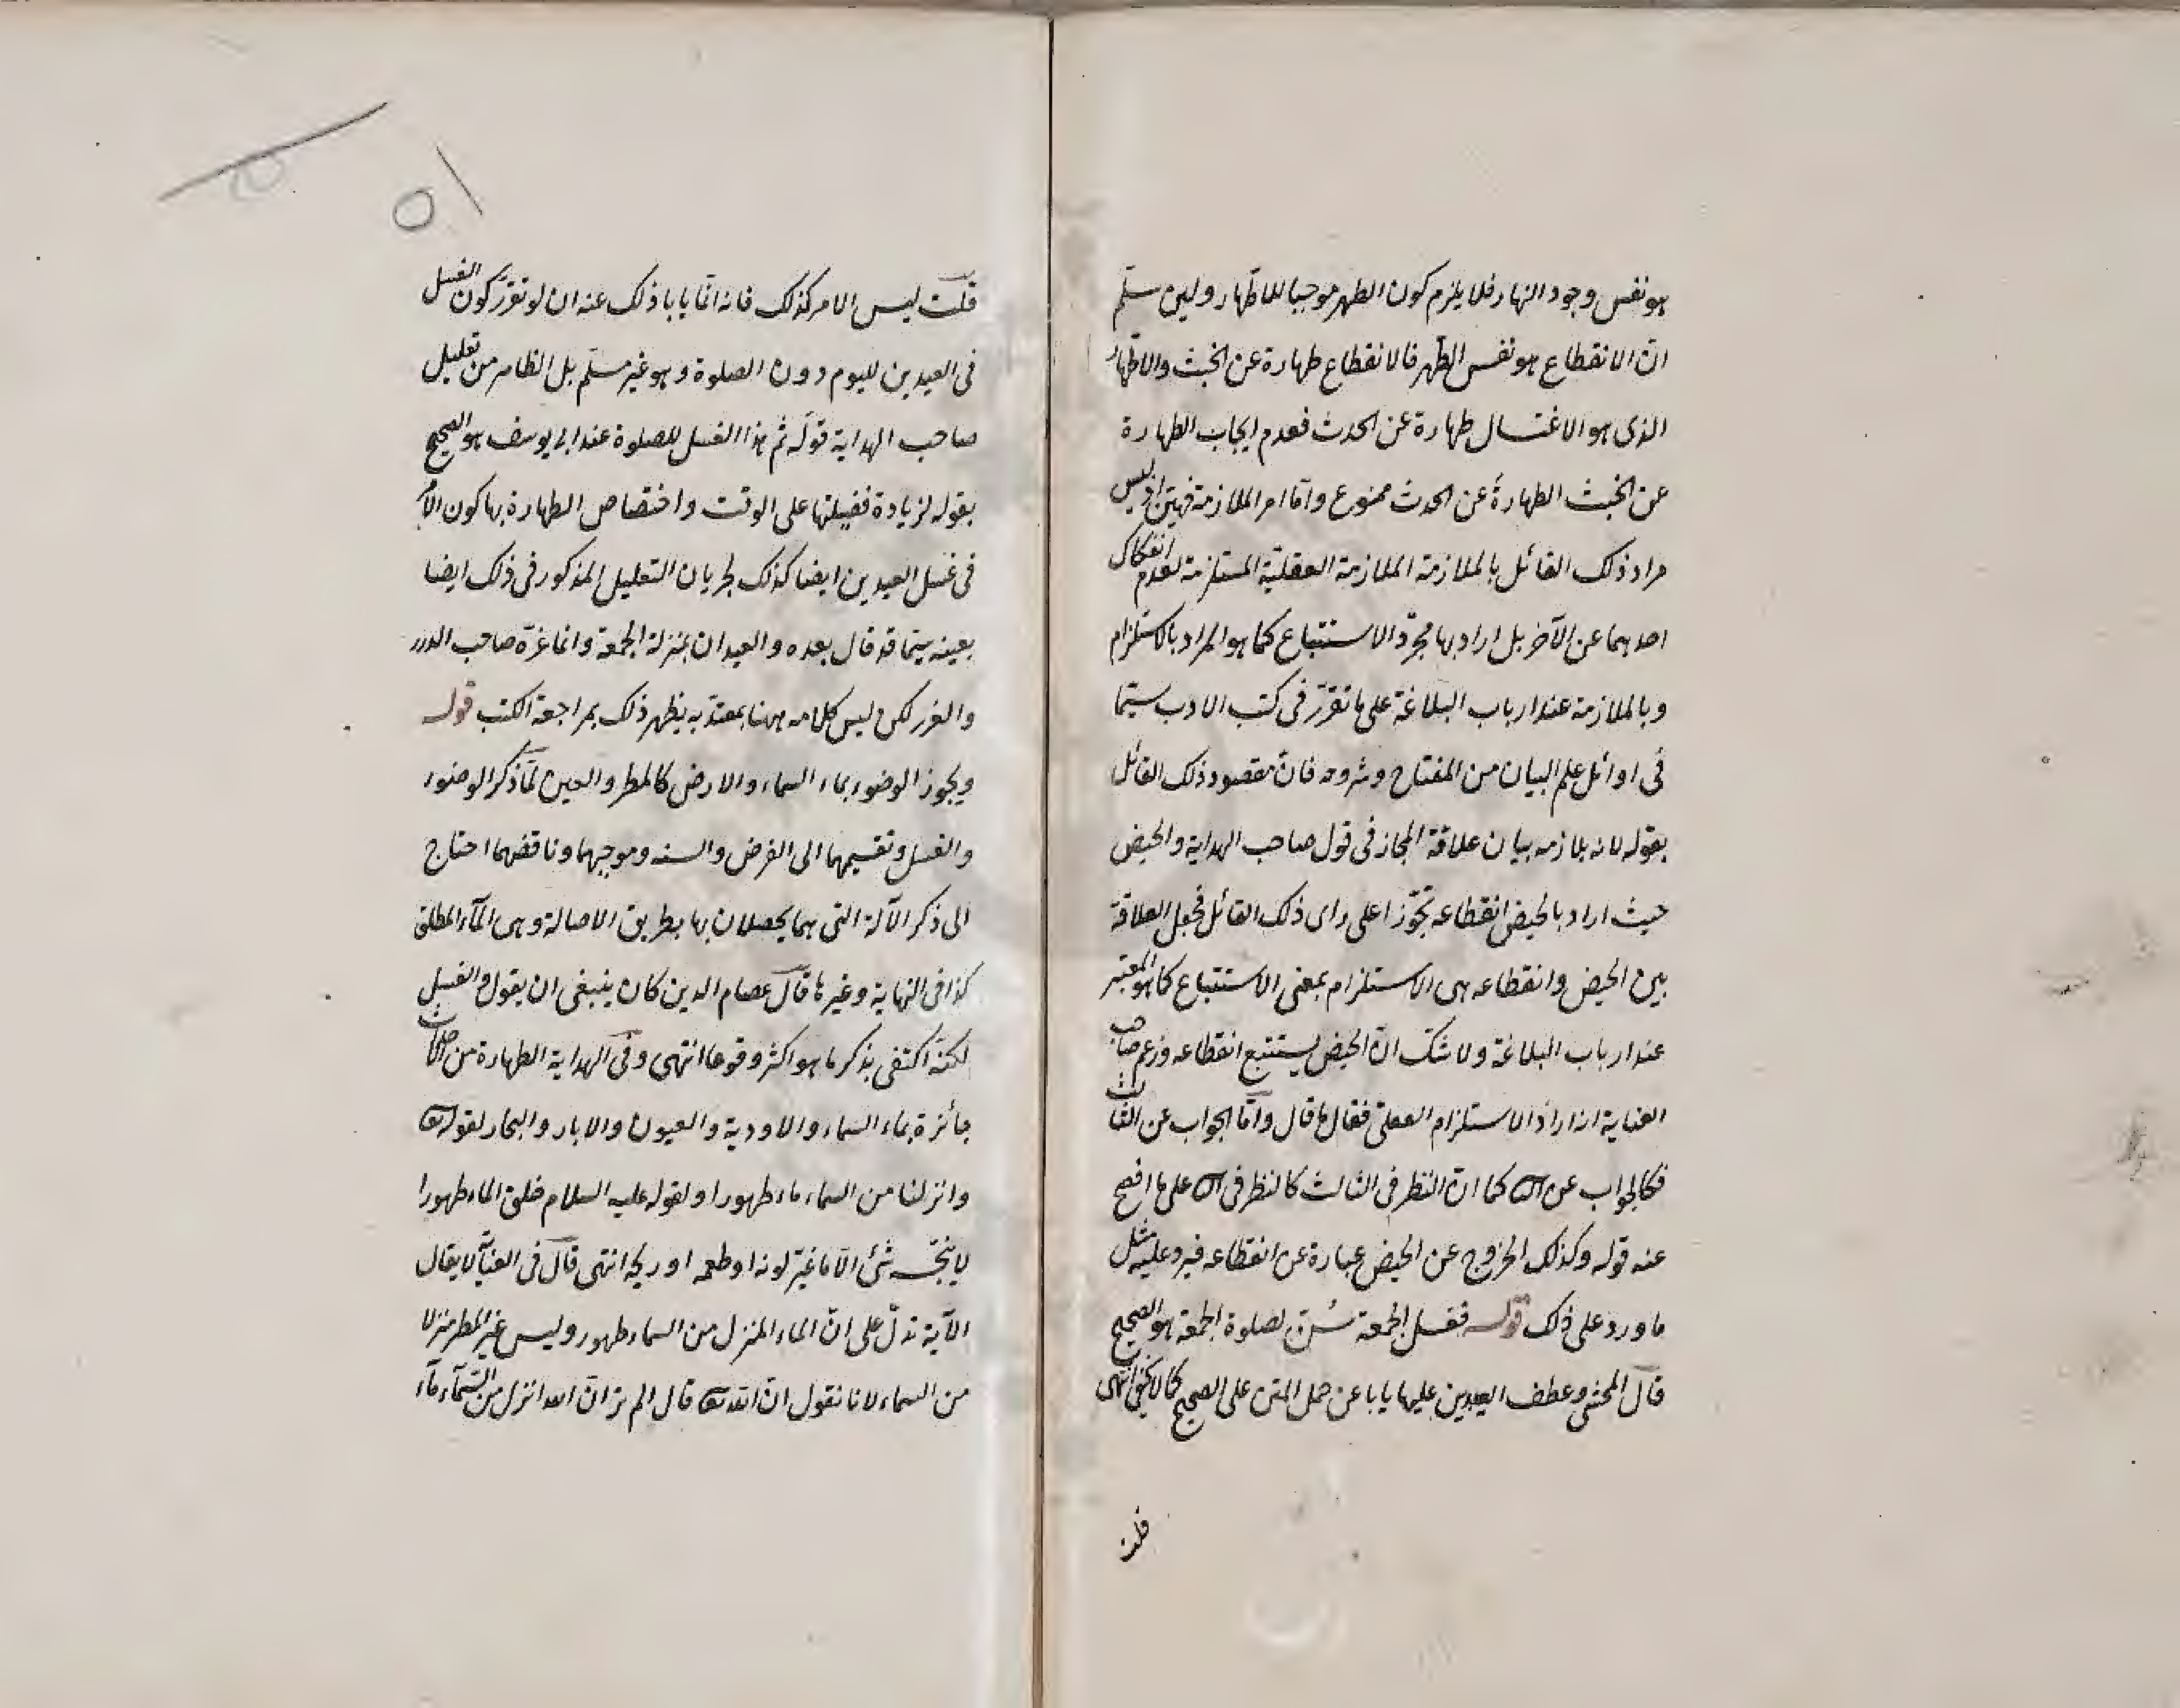 هو نفس وجود النهار فلا يلزم كون الطهر موجبا للاطهار ولين سلم
ان الانقطاع هو نفس الطهر فالانقطاع طهارة عن الخبث والاطهار
الذى هو الاغتسال طهارة عن الحدث فعدم ايجاب الطهارة
عن الخبث الطهارة عن الحدث ممنوع واما امر الملازمة فهين اذ ليس
مراد ذلك القائل بالملازمة الملازمة العقلية المستلزمة لعدم انفكاك
احدهما عن الآخر بل اراد بها مجرد الاستتباع كما هو المراد بالاستلزام
وبالملازمة عند ارباب البلاغة على ما تقرر فى كتب الادب سيما
فى اوائل علم البيان من المفتاح وشروحه فان مقصود ذلك القائل
بقوله لانه يلازمه بيان علاقة المجاز فى قول صاحب الهداية والحيض
حيث اراد بالحيض انقطاعه تجوزا على راى ذلك القائل فجعل العلاقة
بين الحيض وانقطاعه هى الاستلزام بمعنى الاستتباع كما هو المعتبر
عند ارباب البلاغة ولا شك ان الحيض يستتبع انقطاعه وزعم صاحب
العناية انه اراد الاستلزام العقلى فقال ما قال واما الجواب عن الثالث
فكالجواب عن كما ان النظر فى الثالث كالنظر فى على ما افصح
عنه قوله وكذلك الخروج عن الحيض عبارة عن انقطاعه فيرد عليه مثل
ما ورد على ذلك قوله فغسل الجمعة سن لصلوة الجمعة هو الصحيح
قال المحشى وعطف العيدين عليها يابا عن حمل المتن على الصحيح كما لا يخفى انتهى
قلت
قلت ليس الامر كذلك فانه انما يابا ذلك عنه ان لو تقرر كون الغسل
فى العيدين لليوم دون الصلوة وهو غير مسلم بل الظاهر من تعليل
صاحب الهداية قوله ثم هذا الغسل للصلوة عند ابى يوسف هو الصحيح
بقوله لزيادة فضيلتها على الوقت واختصاص الطهارة بها كون الامر
فى غسل العيدين ايضا كذلك لجريان التعليل المذكور فى ذلك ايضا
بعينه سيما قد قال بعده والعيدان بمنزلة الجمعة وانما غره صاحب الدرر
والغرر لكن ليس كلامه ههنا بمعتد به يظهر ذلك بمراجعة الكتب قوله
ويجوز الوضوء بماء السماء والارض كالمطر والعين لما ذكر الوضوء
والغسل وتقسيمهما الى الفرض والسنه وموجبهما وناقضهما احتاج
الى ذكر الآلة التى هما يحصلان بها بطريق الاصالة وهى الماء المطلق
كذا فى النهاية وغيرها قال عصام الدين كان ينبغى ان يقول والغسل
لكنه اكتفى بذكر ما هو اكثر وقوعا انتهى وفى الهداية الطهارة من الاحداث
جائزة بماء السماء والاودية والعيون والابار والبحار لقوله تع
وانزلنا من السماء ماء طهورا ولقوله عليه السلام خلق الماء طهورا
لا ينجسه شئ الا ما غير لونه او طعمه او ريحه انتهى قال فى العناية لا يقال
الآية تدل على ان الماء المنزل من السماء طهور وليس غير المطر منزلا
من السماء لانا نقول ان الله تع قال الم تر ان الله انزل من السماء ماء